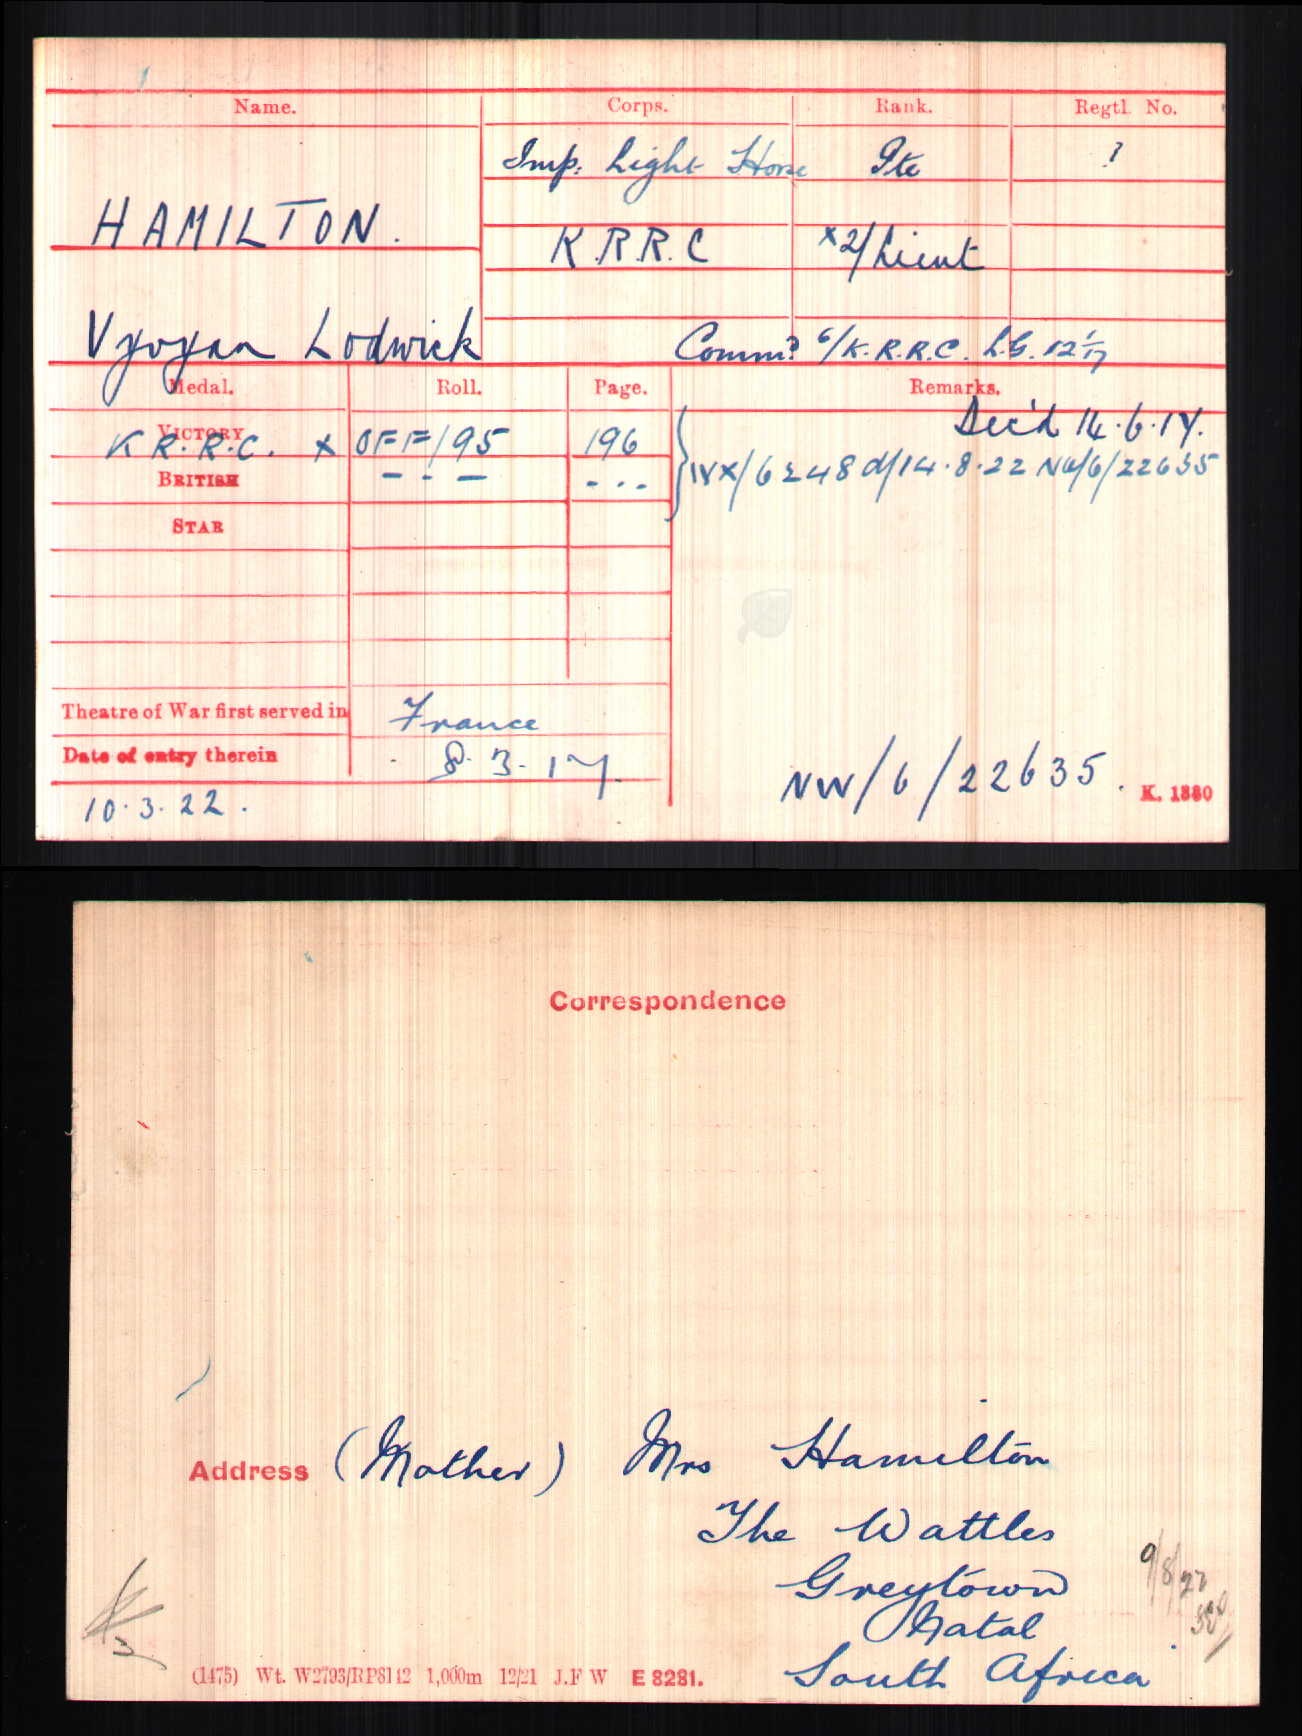 Name. Corps. Rank. Regtl. No.
Imp. Light Horse Pte ?
HAMILTON. K.R.R.C x2/Lieut
Vyvyan Lodwick Commd 6/K.R.R.C. L.G. 12/1/17
Medal. Roll. Page. Remarks.
Dec'd 14.6.17.
VICTORY
K.R.R.C. x OFF/195 196
IVX/6248 d/14.8.22 NW/6/22635
BRITISH - . - - . .
STAR
Theatre of War first served in France
Date of entry therein 8.3.17.
10.3.22. NW/6/22635. K. 1380
Correspondence
Address (Mother) Mrs Hamilton
The Wattles
Greytown
Natal
South Africa
9/8/22
(1475) Wt. W2793/RP8142 1,000m 12/21 J.F W E 8281.